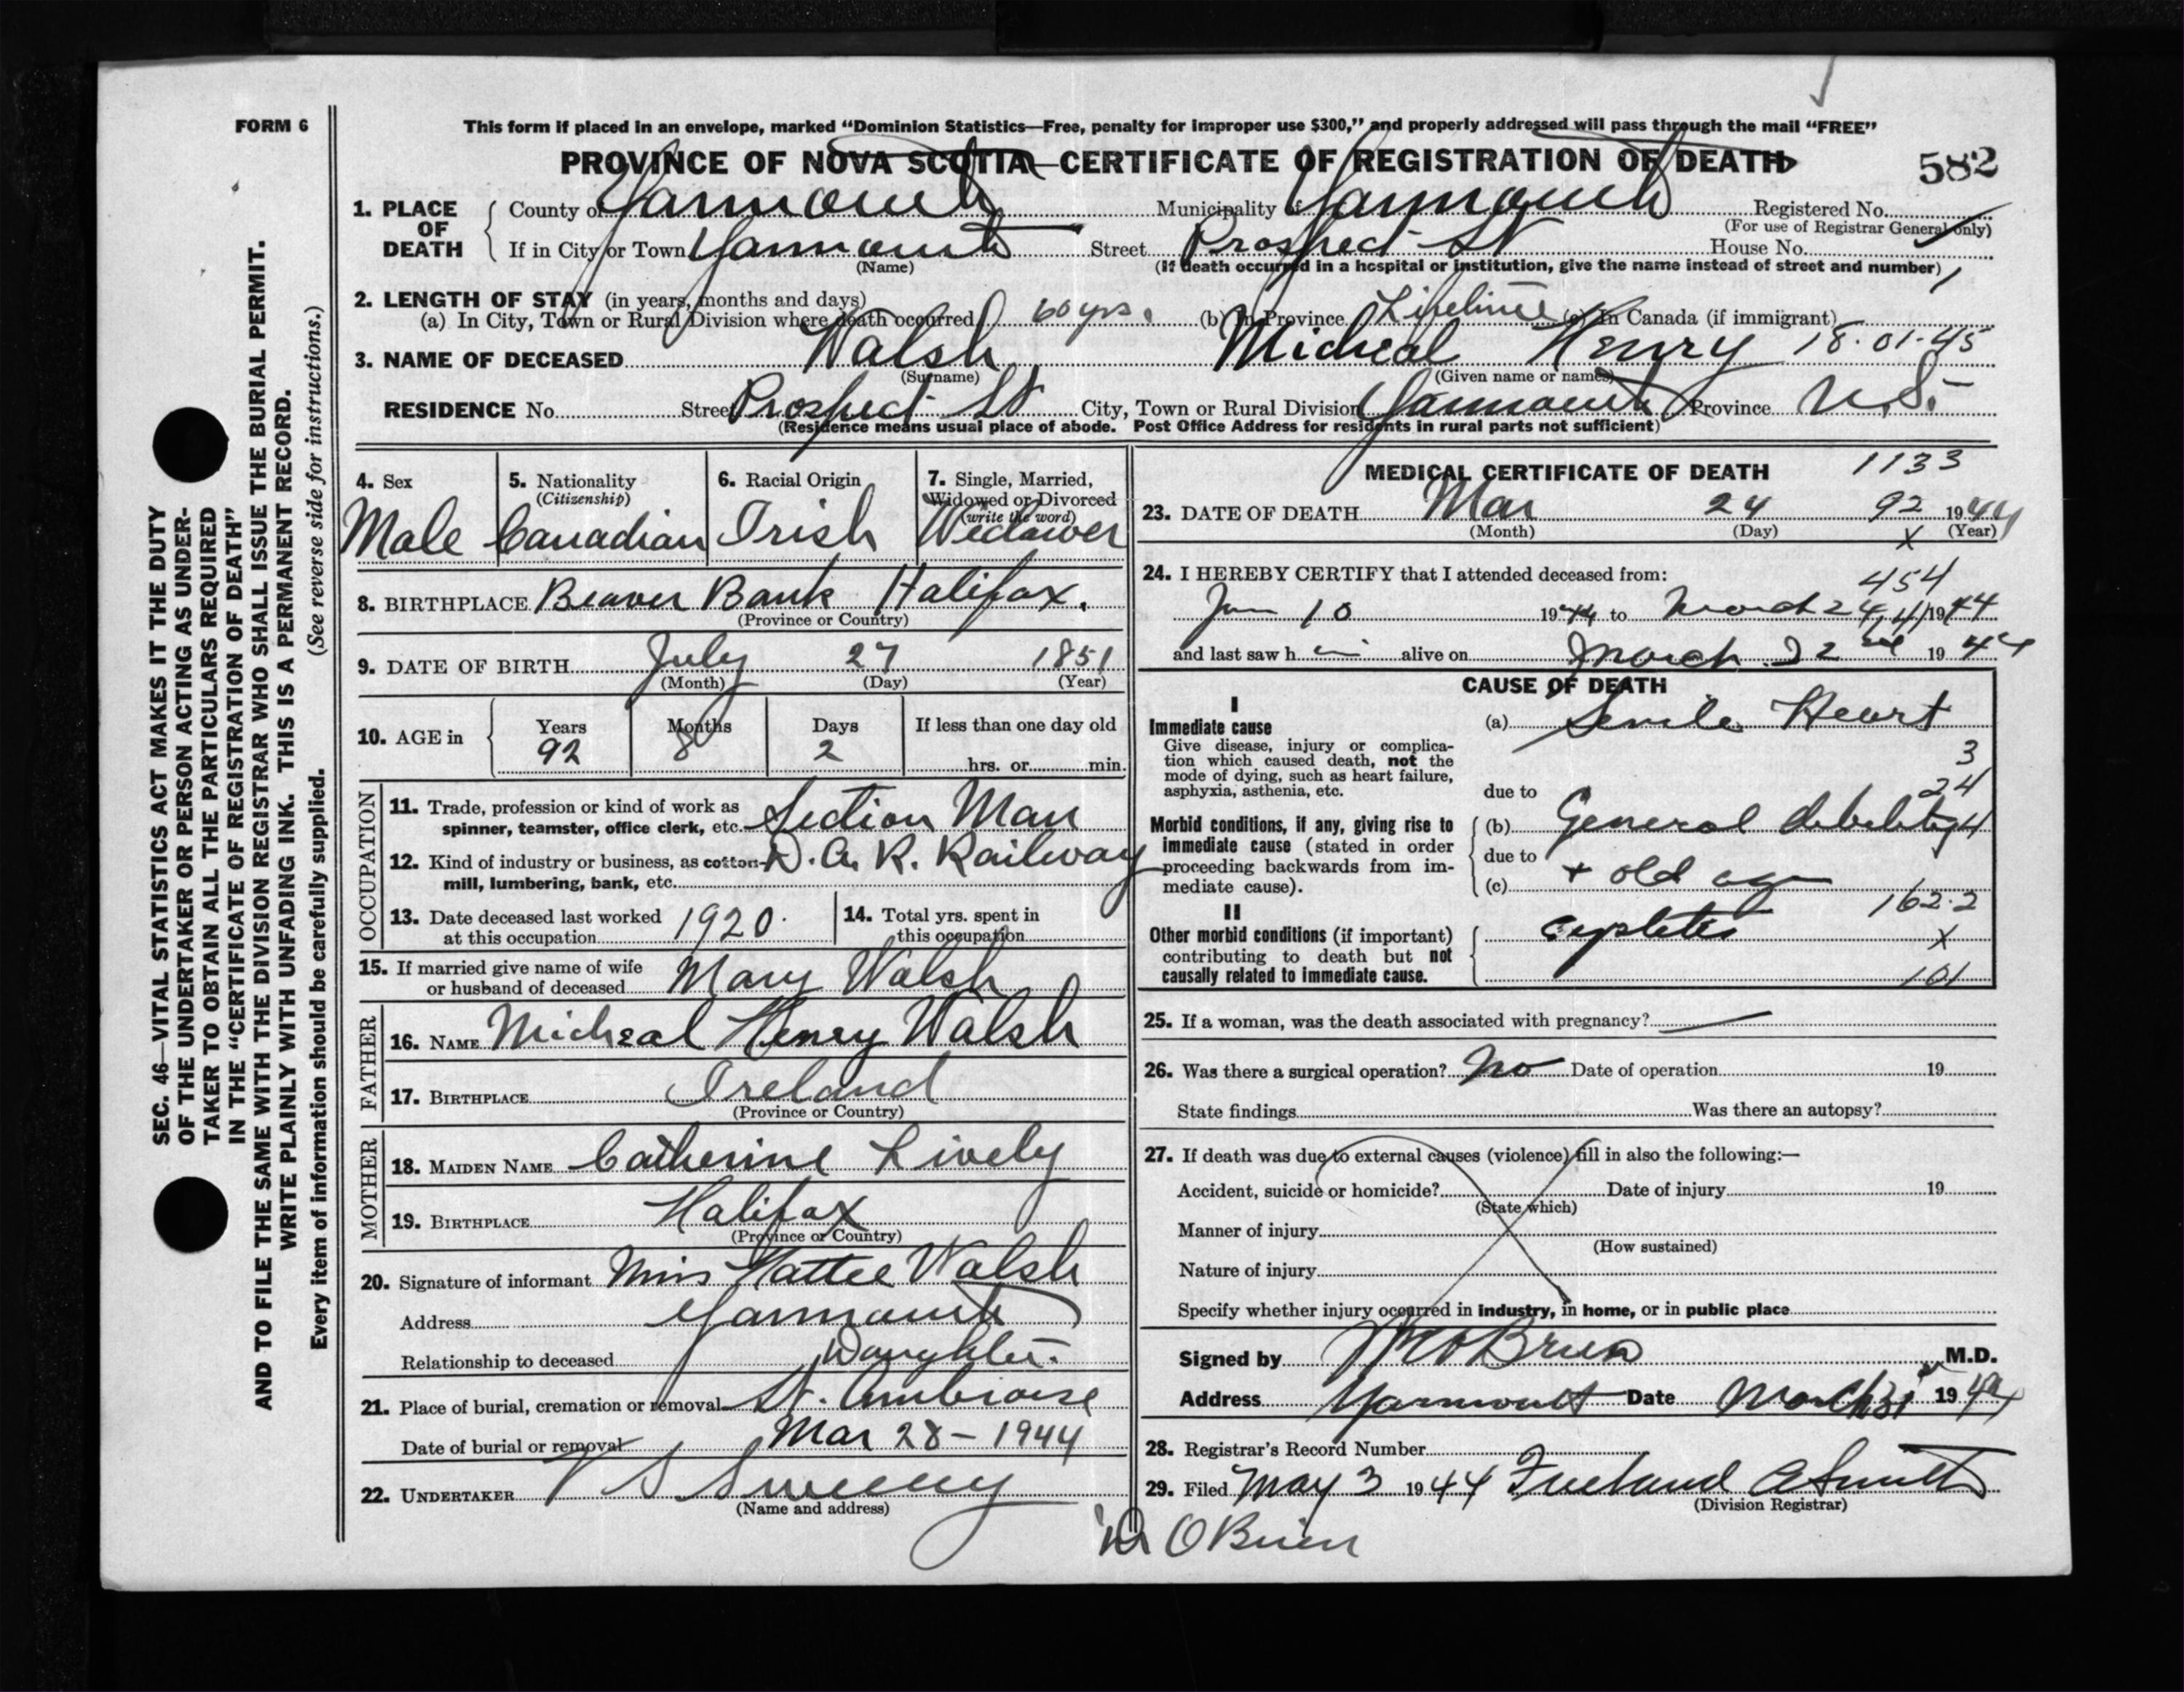 FORM 6
This form if placed in an envelope, marked “Dominion Statistics—Free, penalty for improper use $300,” and properly addressed will pass through the mail “FREE”
PROVINCE OF NOVA SCOTIA—CERTIFICATE OF REGISTRATION OF DEATH
582
1. PLACE OF DEATH { County of Yarmouth Municipality of Yarmouth Registered No.
(For use of Registrar General only)
If in City or Town Yarmouth Street Prospect St House No.
(Name) (If death occurred in a hospital or institution, give the name instead of street and number)
2. LENGTH OF STAY (in years, months and days)
(a) In City, Town or Rural Division where death occurred 60 yrs. (b) In Province Lifetime (c) In Canada (if immigrant)
3. NAME OF DECEASED Walsh Micheal Henry 18-01-45
(Surname) (Given name or names)
RESIDENCE No. Street Prospect St City, Town or Rural Division Yarmouth Province N.S.
(Residence means usual place of abode. Post Office Address for residents in rural parts not sufficient)
4. Sex 5. Nationality 6. Racial Origin 7. Single, Married,
(Citizenship) Widowed or Divorced
(write the word)
Male Canadian Irish Widower
8. BIRTHPLACE Beaver Bank Halifax.
(Province or Country)
9. DATE OF BIRTH July 27 1851
(Month) (Day) (Year)
10. AGE in { Years Months Days If less than one day old
92 8 2 hrs. or min.
OCCUPATION
11. Trade, profession or kind of work as
spinner, teamster, office clerk, etc. Section Man
12. Kind of industry or business, as cotton- D. A. R. Railway
mill, lumbering, bank, etc.
13. Date deceased last worked 14. Total yrs. spent in
at this occupation 1920. this occupation
15. If married give name of wife
or husband of deceased Mary Walsh
FATHER
16. NAME Micheal Henry Walsh
17. BIRTHPLACE Ireland
(Province or Country)
MOTHER
18. MAIDEN NAME Catherine Lively
19. BIRTHPLACE Halifax
(Province or Country)
20. Signature of informant Miss Hattee Walsh
Address Yarmouth
Relationship to deceased Daughter.
21. Place of burial, cremation or removal St. Ambroise
Date of burial or removal Mar 28 – 1944
22. UNDERTAKER V S Sweeny
(Name and address)
MEDICAL CERTIFICATE OF DEATH 1133
23. DATE OF DEATH Mar 24 92 1944
(Month) (Day) X (Year)
24. I HEREBY CERTIFY that I attended deceased from:
454
Jan 10 1944 to March 24, 1944
and last saw h alive on March 22nd 1944
CAUSE OF DEATH
I
Immediate cause (a) Senile Heart
Give disease, injury or complica-
tion which caused death, not the
mode of dying, such as heart failure,
asphyxia, asthenia, etc.
3
24
due to
Morbid conditions, if any, giving rise to
immediate cause (stated in order
proceeding backwards from im-
mediate cause).
(b) General debility
due to
(c) + old age
162.2
II
Other morbid conditions (if important)
contributing to death but not
causally related to immediate cause.
X
101
25. If a woman, was the death associated with pregnancy? —
26. Was there a surgical operation? No Date of operation 19
State findings Was there an autopsy?
27. If death was due to external causes (violence) fill in also the following:—
Accident, suicide or homicide? Date of injury 19
(State which)
Manner of injury
(How sustained)
Nature of injury
Specify whether injury occurred in industry, in home, or in public place
Signed by O'Brien M.D.
Address Yarmouth Date March 31 1944
28. Registrar's Record Number
29. Filed May 3 1944 Freeland A Smith
(Division Registrar)
Dr O Brien
SEC. 46—VITAL STATISTICS ACT MAKES IT THE DUTY
OF THE UNDERTAKER OR PERSON ACTING AS UNDER-
TAKER TO OBTAIN ALL THE PARTICULARS REQUIRED
IN THE “CERTIFICATE OF REGISTRATION OF DEATH”
AND TO FILE THE SAME WITH THE DIVISION REGISTRAR WHO SHALL ISSUE THE BURIAL PERMIT.
WRITE PLAINLY WITH UNFADING INK. THIS IS A PERMANENT RECORD.
Every item of information should be carefully supplied. (See reverse side for instructions.)